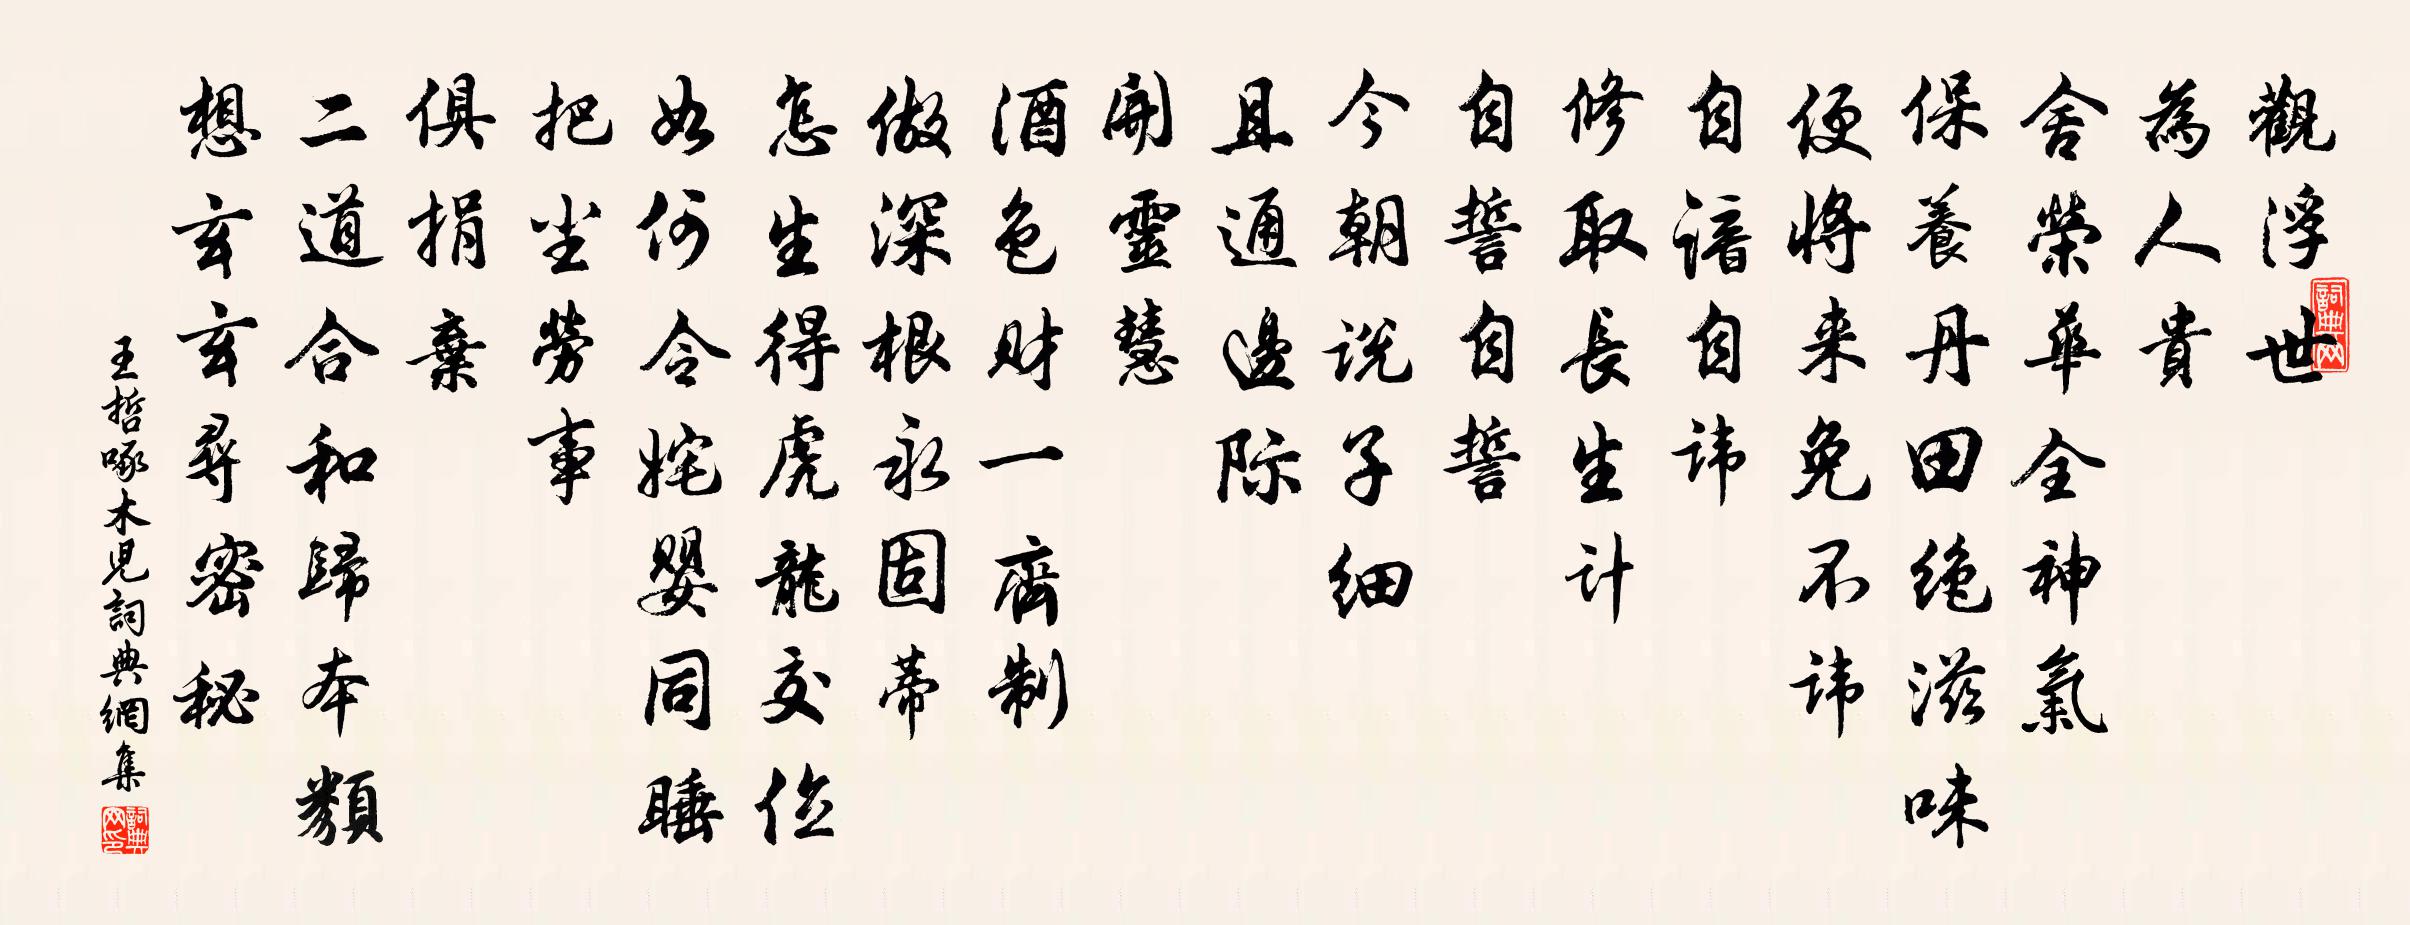 觀浮世
為人貴
舍榮華全神氣
保養丹田絶滋味
便將来免不讳
自谙自讳
修取長生计
自誓自誓
今朝说子细
且通邊际
開靈慧
酒色财一齊制
做深根永固蒂
怎生得虎龍交位
如何令姹嬰同睡
把坐劳事
俱捐棄
二道合和歸本類
想玄玄尋密秘
王哲啄木児詞典網集
詞典网
詞典网印